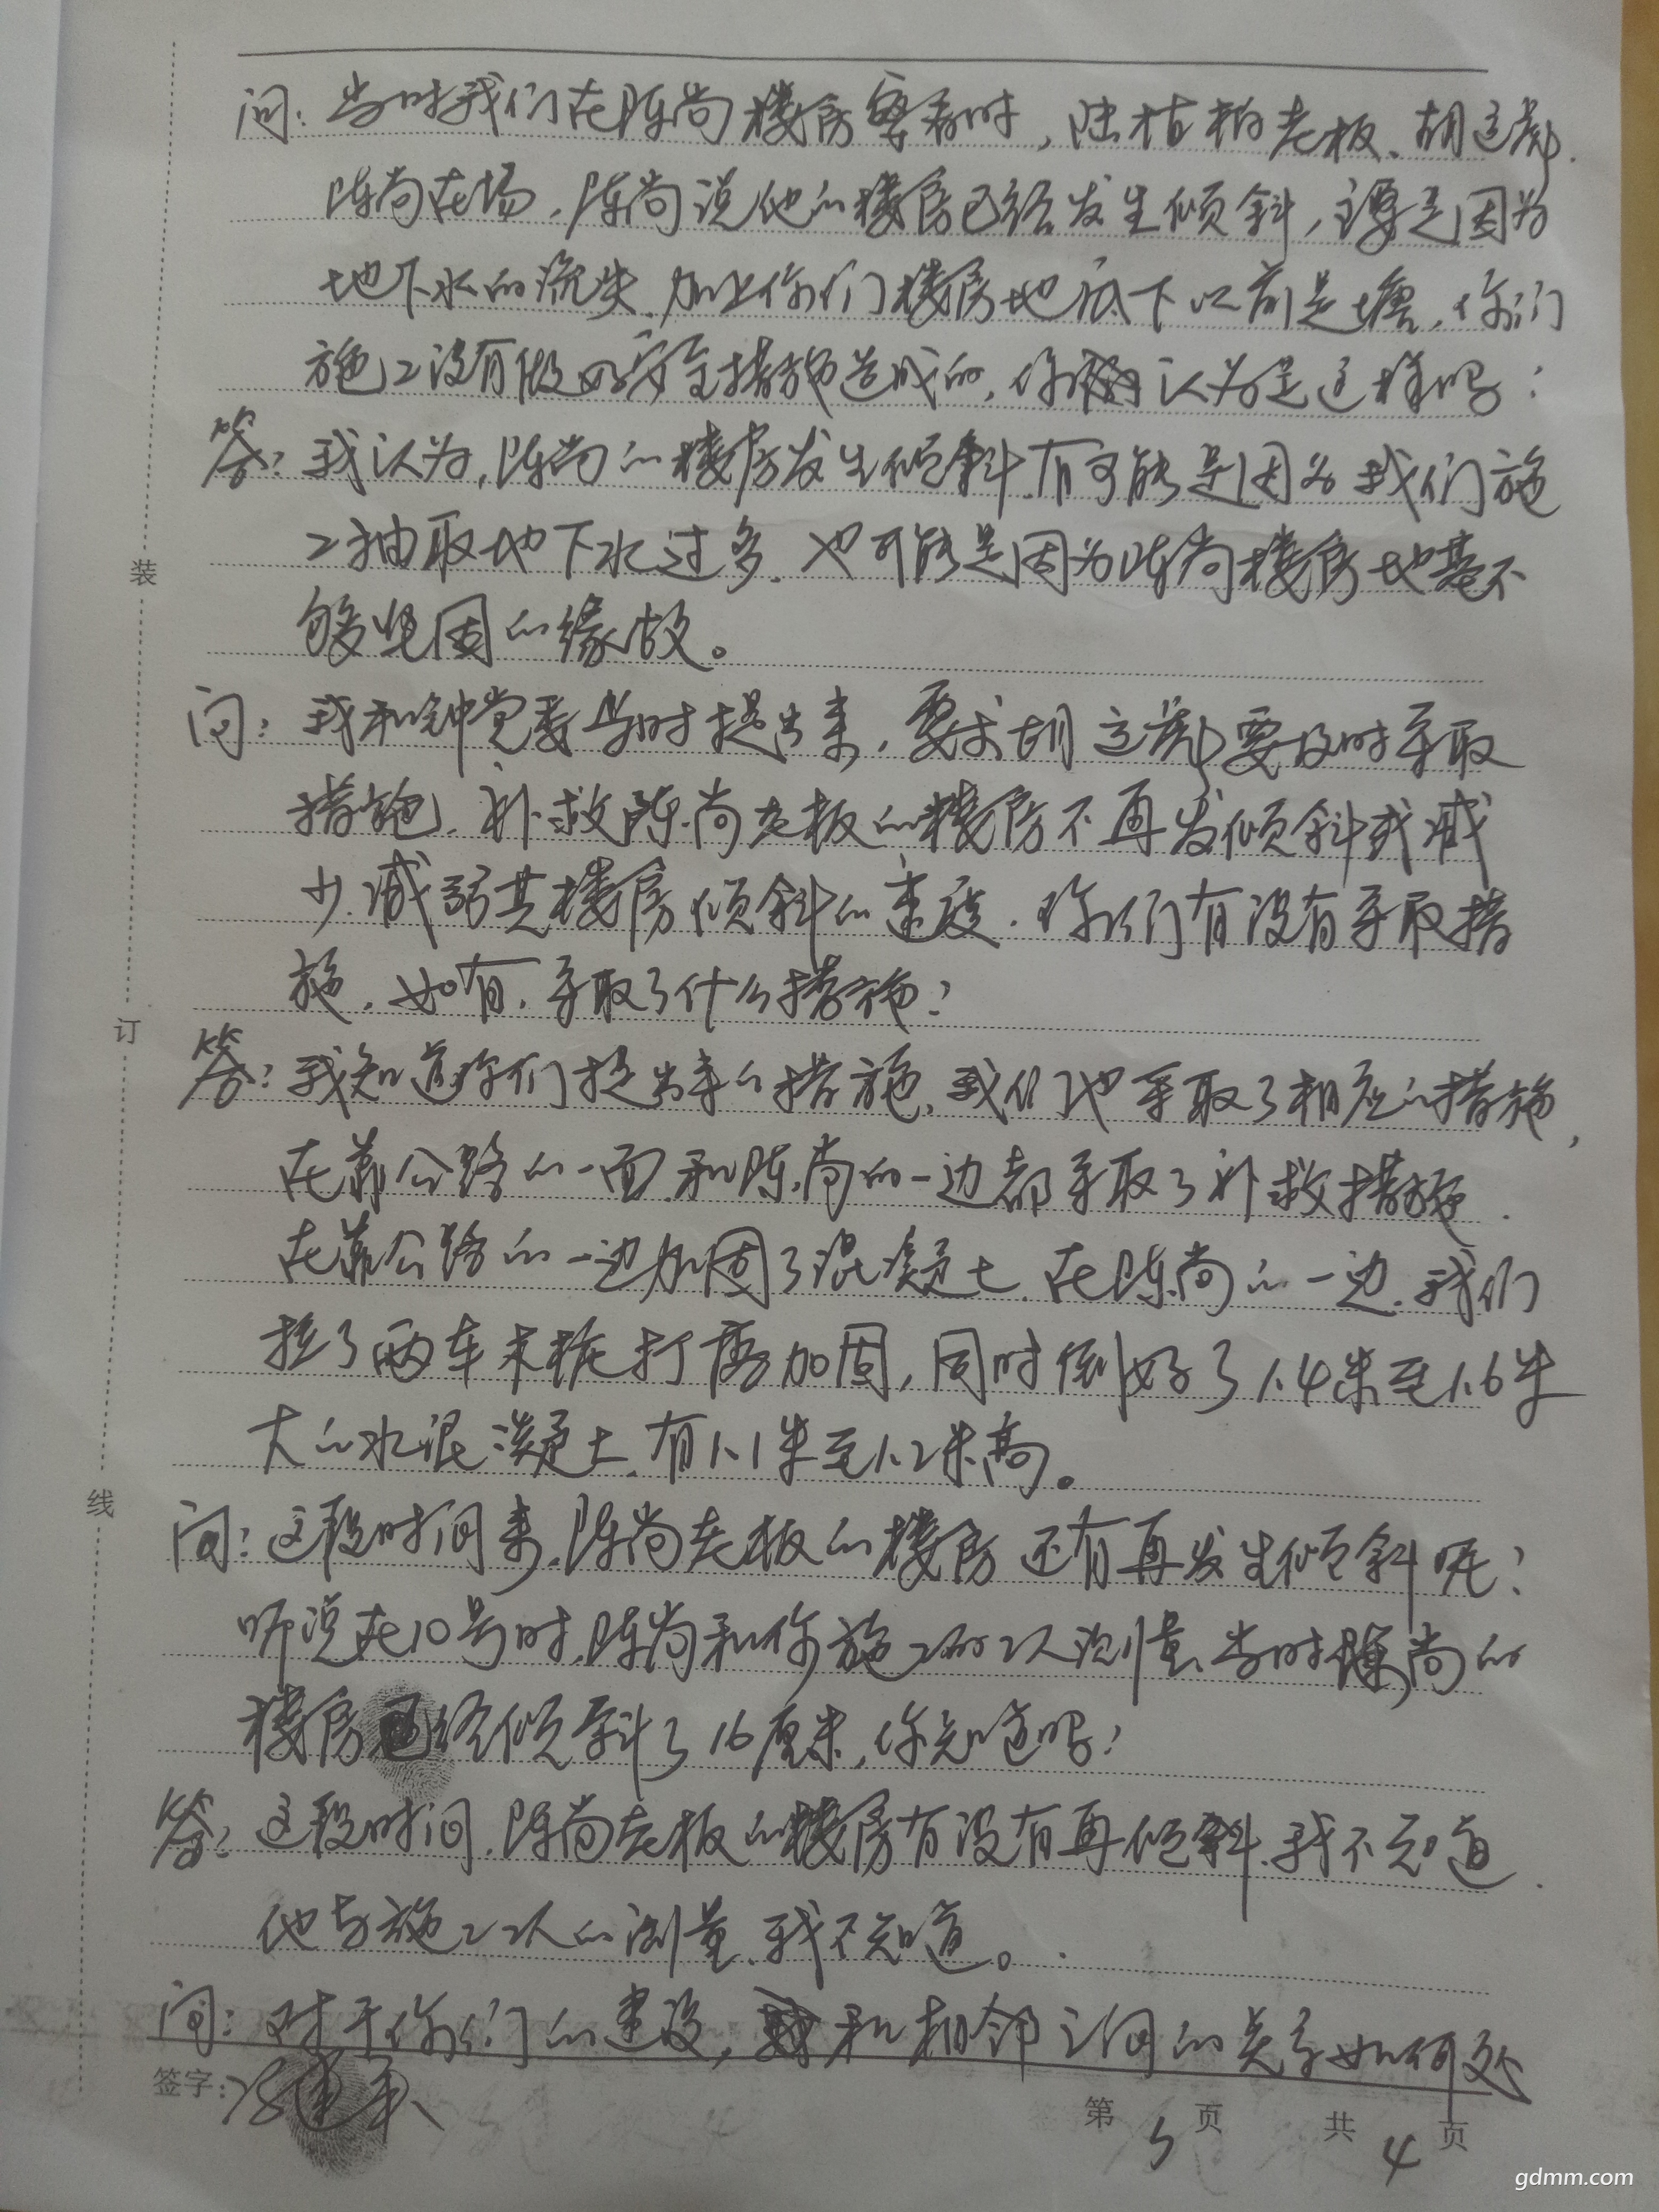 问：当时我们在陈尚楼房察看时，陆桂柏老板、胡这彪、
陈尚在场，陈尚说他的楼房已经发生倾斜，主要是因为
地下水的流失，加上你们楼房地底下以前是塘，你们
施工没有做好安全措施造成的，你认为是这样吗？
答：我认为，陈尚的楼房发生倾斜，有可能是因为我们施
工抽取地下水过多，也可能是因为陈尚楼房地基不
够坚固的缘故。
问：我和钟党委当时提出来，要求胡这彪要及时采取
措施，补救陈尚老板的楼房不再发倾斜或减
少、减弱其楼房倾斜的速度，你们有没有采取措
施，如有，采取了什么措施？
答：我知道你们提出来的措施，我们也采取了相应的措施，
在靠公路的一面和陈尚的一边都采取了补救措施，
在靠公路的一边加固了混凝土，在陈尚的一边，我们
拉了两车木桩打磨加固，同时倒好了1.4米至1.6米
大的水混凝土，有1.1米至1.2米高。
问：这段时间来，陈尚老板的楼房还有再发生倾斜呢？
听说在10号时，陈尚和你施工的工人测量，当时陈尚的
楼房已经倾斜了16厘米，你知道吗？
答：这段时间，陈尚老板的楼房有没有再倾斜，我不知道，
他与施工工人的测量，我不知道。
问：对于你们的建设，和相邻之间的关系如何处
签字：
第 3 页 共 4 页
装
订
线
gdmm.com